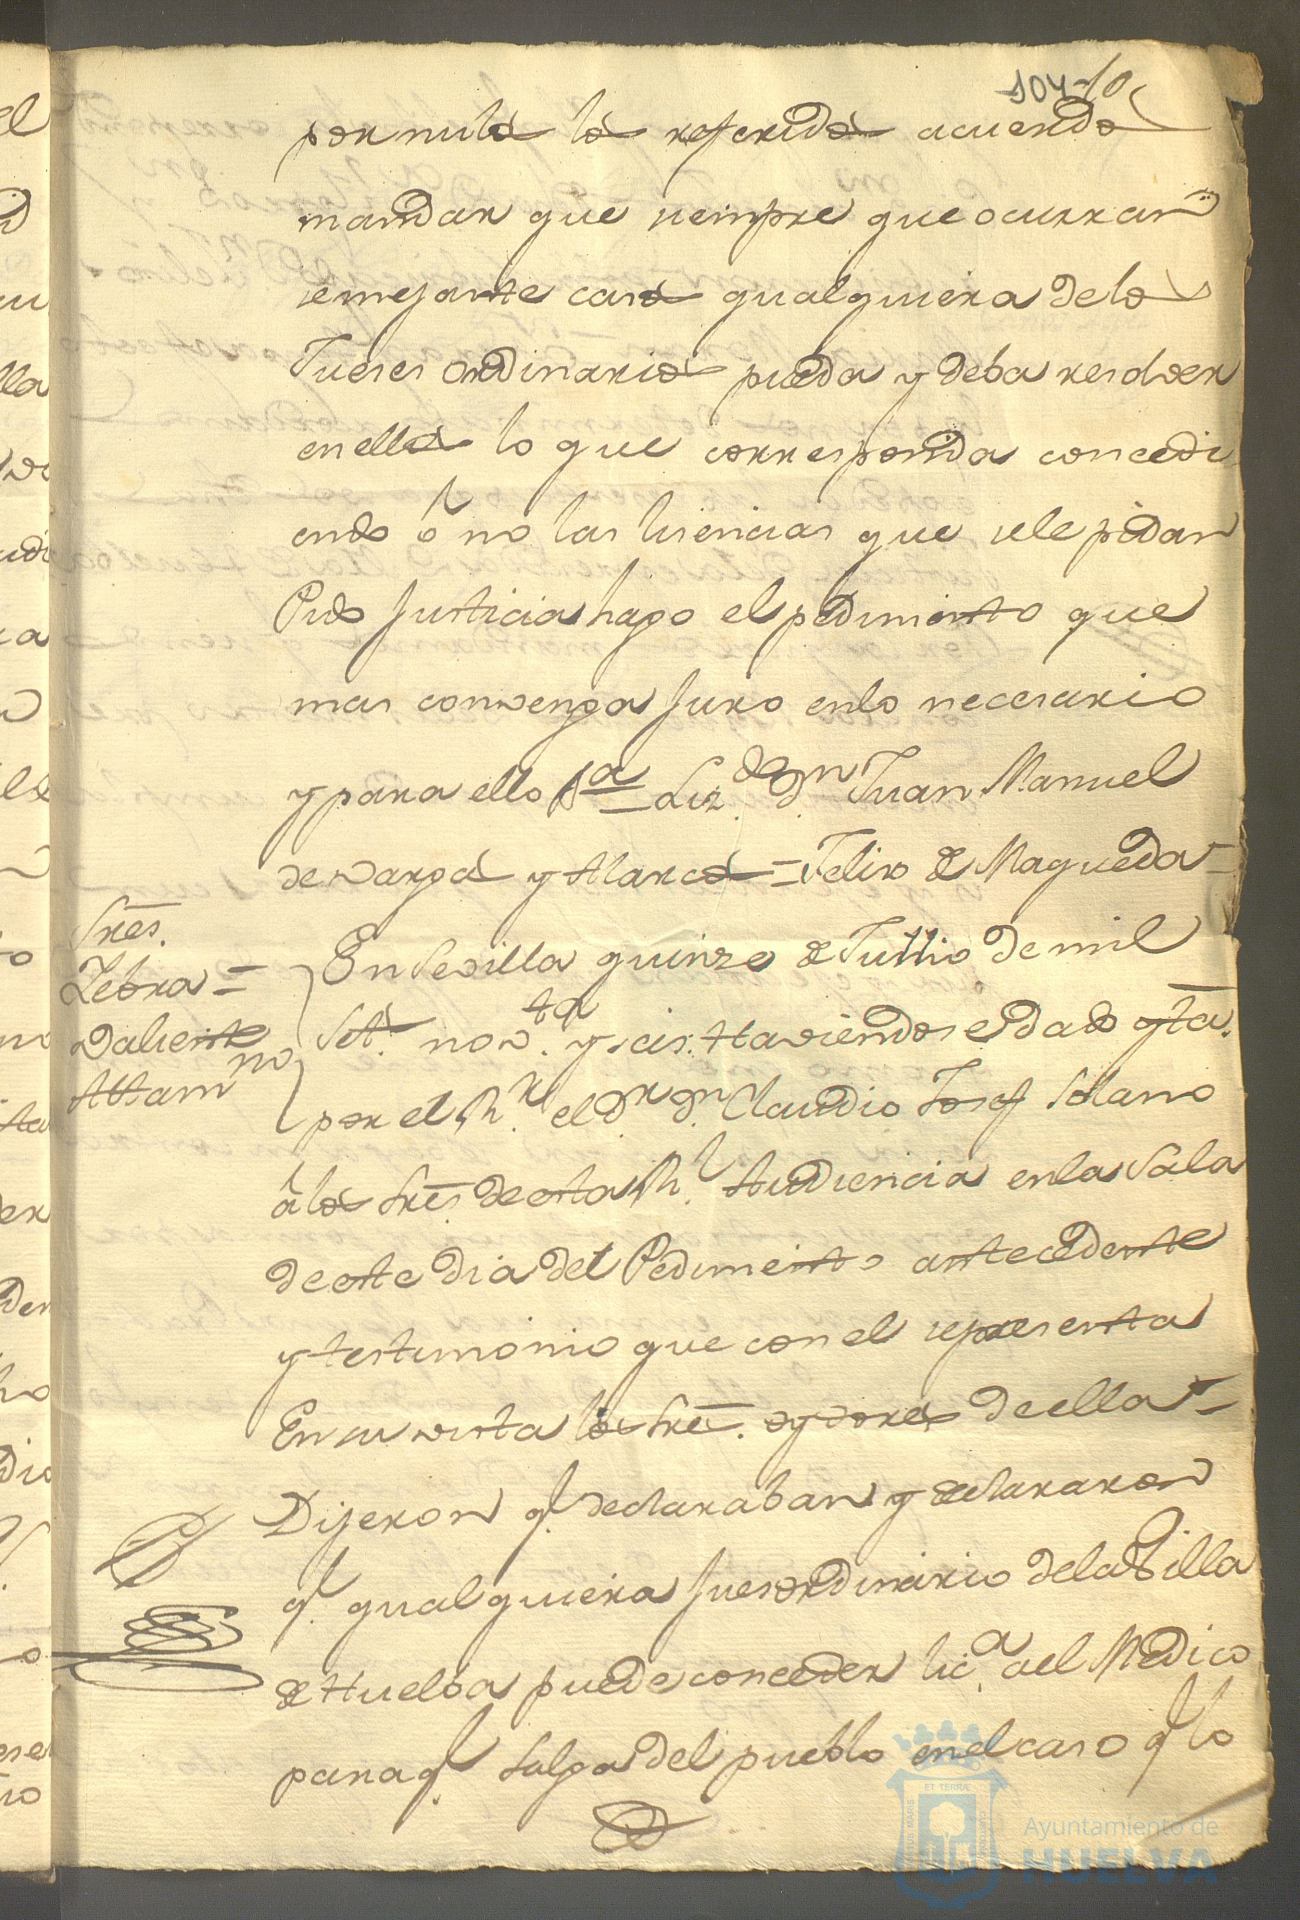 104-10
por nulos los referidos acuerdos
mandar que siempre que ocurran
semejantes casos qualquiera de los
Jueses Ordinarios pueda y deba resolver
en ellos lo que corresponda concedi
endo ó no las lisencias que se le pidan
Pido Justicia hago el pedimento que
mas convenga Juro en lo necesario
y para ello &a Liz.do Dn Juan Manuel
de Vargas y Alarcos = Felix de Maqueda =
Sres.
Zebra =
Valiente
Altamno
En Sevilla quinze de Jullio de mil
Set.s nov.ta y seis. Haviendose dado qta.
por el Rr. el Dr Dn Claudio Josef Solano
á los Sres de esta Rl. Audiencia en la Sala
de este dia del Pedimento antecedente
y testimonio que con el se presenta
En su vista los Sres. oydores de ella =
Dijeron q.e declaraban y declararon
q.e qualquiera Jues ordinario de la Villa
de Huelba puede conceder lic.a a el Medico
para q.e salga del pueblo en el caso q.e lo
ET TERRÆ
Ayuntamiento de
HUELVA